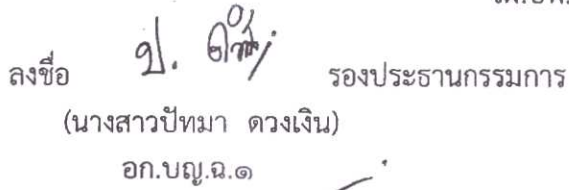 ลงชื่อ ป. รองประธานกรรมการ
(นางสาวปัทมา ดวงเงิน)
อก.บญ.ฉ.๑